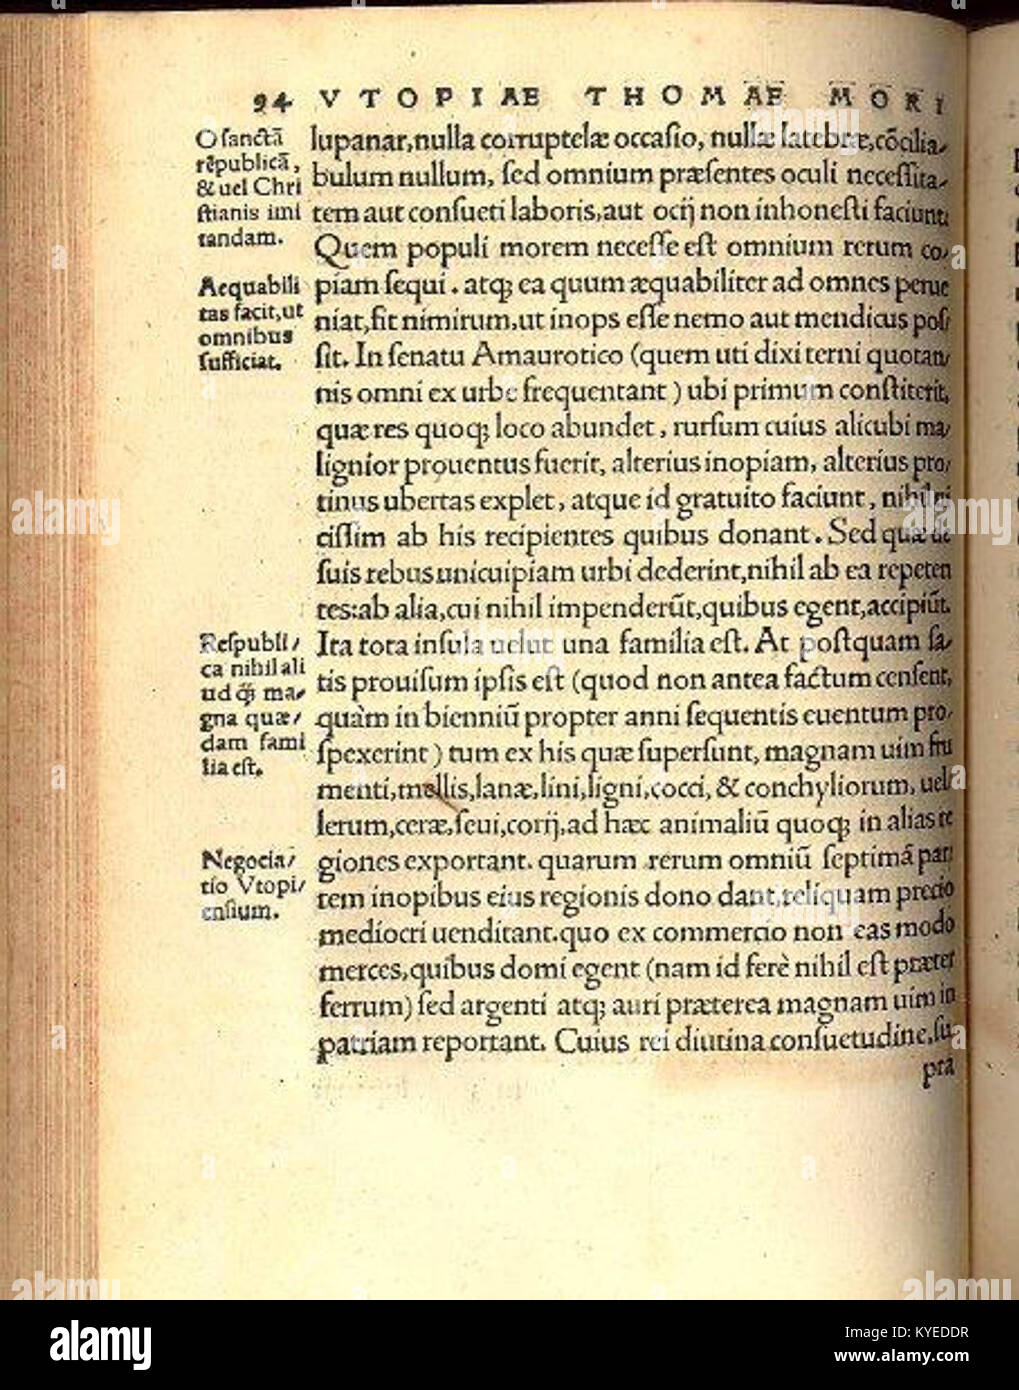 94 VTOPIAE THOMAE MORI
O sanctā
rēpublicā,
& uel Chri
stianis imi
tandam.
Aequabili
tas facit, ut
omnibus
sufficiat.
Respubli/
ca nihil ali
ud q̃ ma/
gna quæ/
dam fami
lia est.
Negocia/
tio Vtopi/
ensium.
lupanar, nulla corruptelæ occasio, nullæ latebræ, cōcilia/
bulum nullum, sed omnium præsentes oculi necessita/
tem aut consueti laboris, aut ocij non inhonesti faciunt.
Quem populi morem necesse est omnium rerum co/
piam sequi. atq; ea quum æquabiliter ad omnes perue
niat, fit nimirum, ut inops esse nemo aut mendicus pos/
sit. In senatu Amaurotico (quem uti dixi terni quotan/
nis omni ex urbe frequentant) ubi primum constiterit,
quæ res quoq; loco abundet, rursum cuius alicubi ma/
lignior prouentus fuerit, alterius inopiam, alterius pro/
tinus ubertas explet, atque id gratuito faciunt, nihil ui
cissim ab his recipientes quibus donant. Sed quæ de
suis rebus unicuipiam urbi dederint, nihil ab ea repeten
tes: ab alia, cui nihil impenderūt, quibus egent, accipiūt.
Ita tota insula uelut una familia est. At postquam sa/
tis prouisum ipsis est (quod non antea factum censent,
quàm in bienniū propter anni sequentis euentum pro/
spexerint) tum ex his quæ supersunt, magnam uim fru
menti, mellis, lanæ, lini, ligni, cocci, & conchyliorum, uel/
lerum, ceræ, seui, corij, ad hæc animaliū quoq; in alias re
giones exportant. quarum rerum omniū septimā par/
tem inopibus eius regionis dono dant, reliquam precio
mediocri uenditant. quo ex commercio non eas modo
merces, quibus domi egent (nam id ferè nihil est præter
ferrum) sed argenti atq; auri præterea magnam uim in
patriam reportant. Cuius rei diutina consuetudine, su/
pra
alamy
Image ID: KYEDDR
www.alamy.com